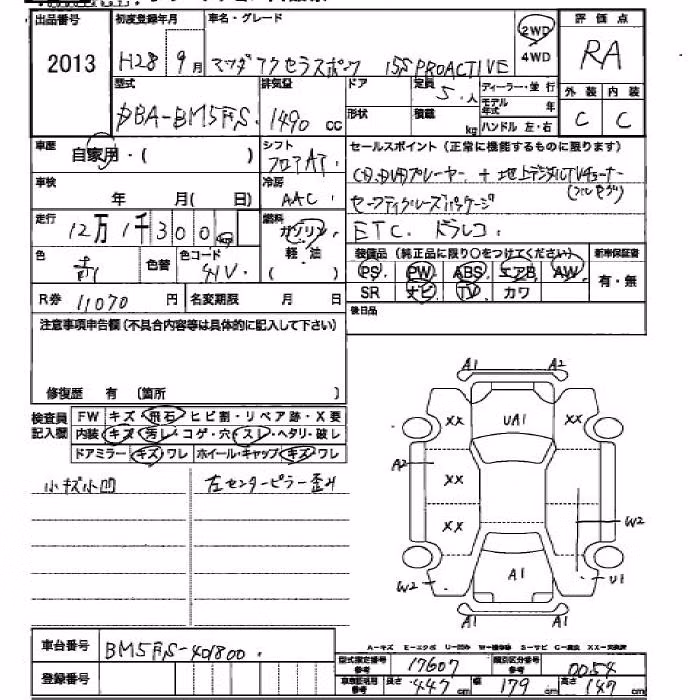 出品番号 初度登録年月 車名・グレード 評価点
2013 H28 9月 マツダアクセラスポーツ 15S PROACTIVE 2WD 4WD RA
型式 排気量 ドア 定員 ディーラー・並行 外装 内装
DBA-BM5FS 1490 cc 5人 モデル年式 年 C C
形状 積載 kg ハンドル 左・右
車歴 自家用・( ) シフト フロアAT セールスポイント (正常に機能するものに限ります)
車検 年 月( 日) 冷房 AAC CD.DVDプレーヤー + 地上デジタルTVチューナー
(フルセグ)
走行 12万1千300km 燃料 ガソリン 軽油 ( )
ETC. ドラレコ
色 青 色替 色コード 41V 装備品 (純正品に限り○をつけてください) 新車保証書
PS PW ABS エアB AW 有・無
SR ナビ TV カワ
R券 11070円 名変期限 月 日 後日品
注意事項申告欄 (不具合内容等は具体的に記入して下さい)
修復歴 有 (箇所 )
検査員記入欄 FW キズ・飛石・ヒビ割・リペア跡・X要
内装 キズ・汚レ・コゲ・穴・スレ・ヘタリ・破レ
ドアミラー キズ・ワレ ホイール・キャップ・キズ・ワレ
小キズ小凹 左センターピラー歪み
A1 A2
XX UA1 XX
A2 XX
XX W2
W2 A1 U1
A1 A1
車台番号 BM5FS-401800
型式指定番号 17607 類別区分番号 0054
登録番号 長さ 447cm 幅 179cm 高さ 147cm